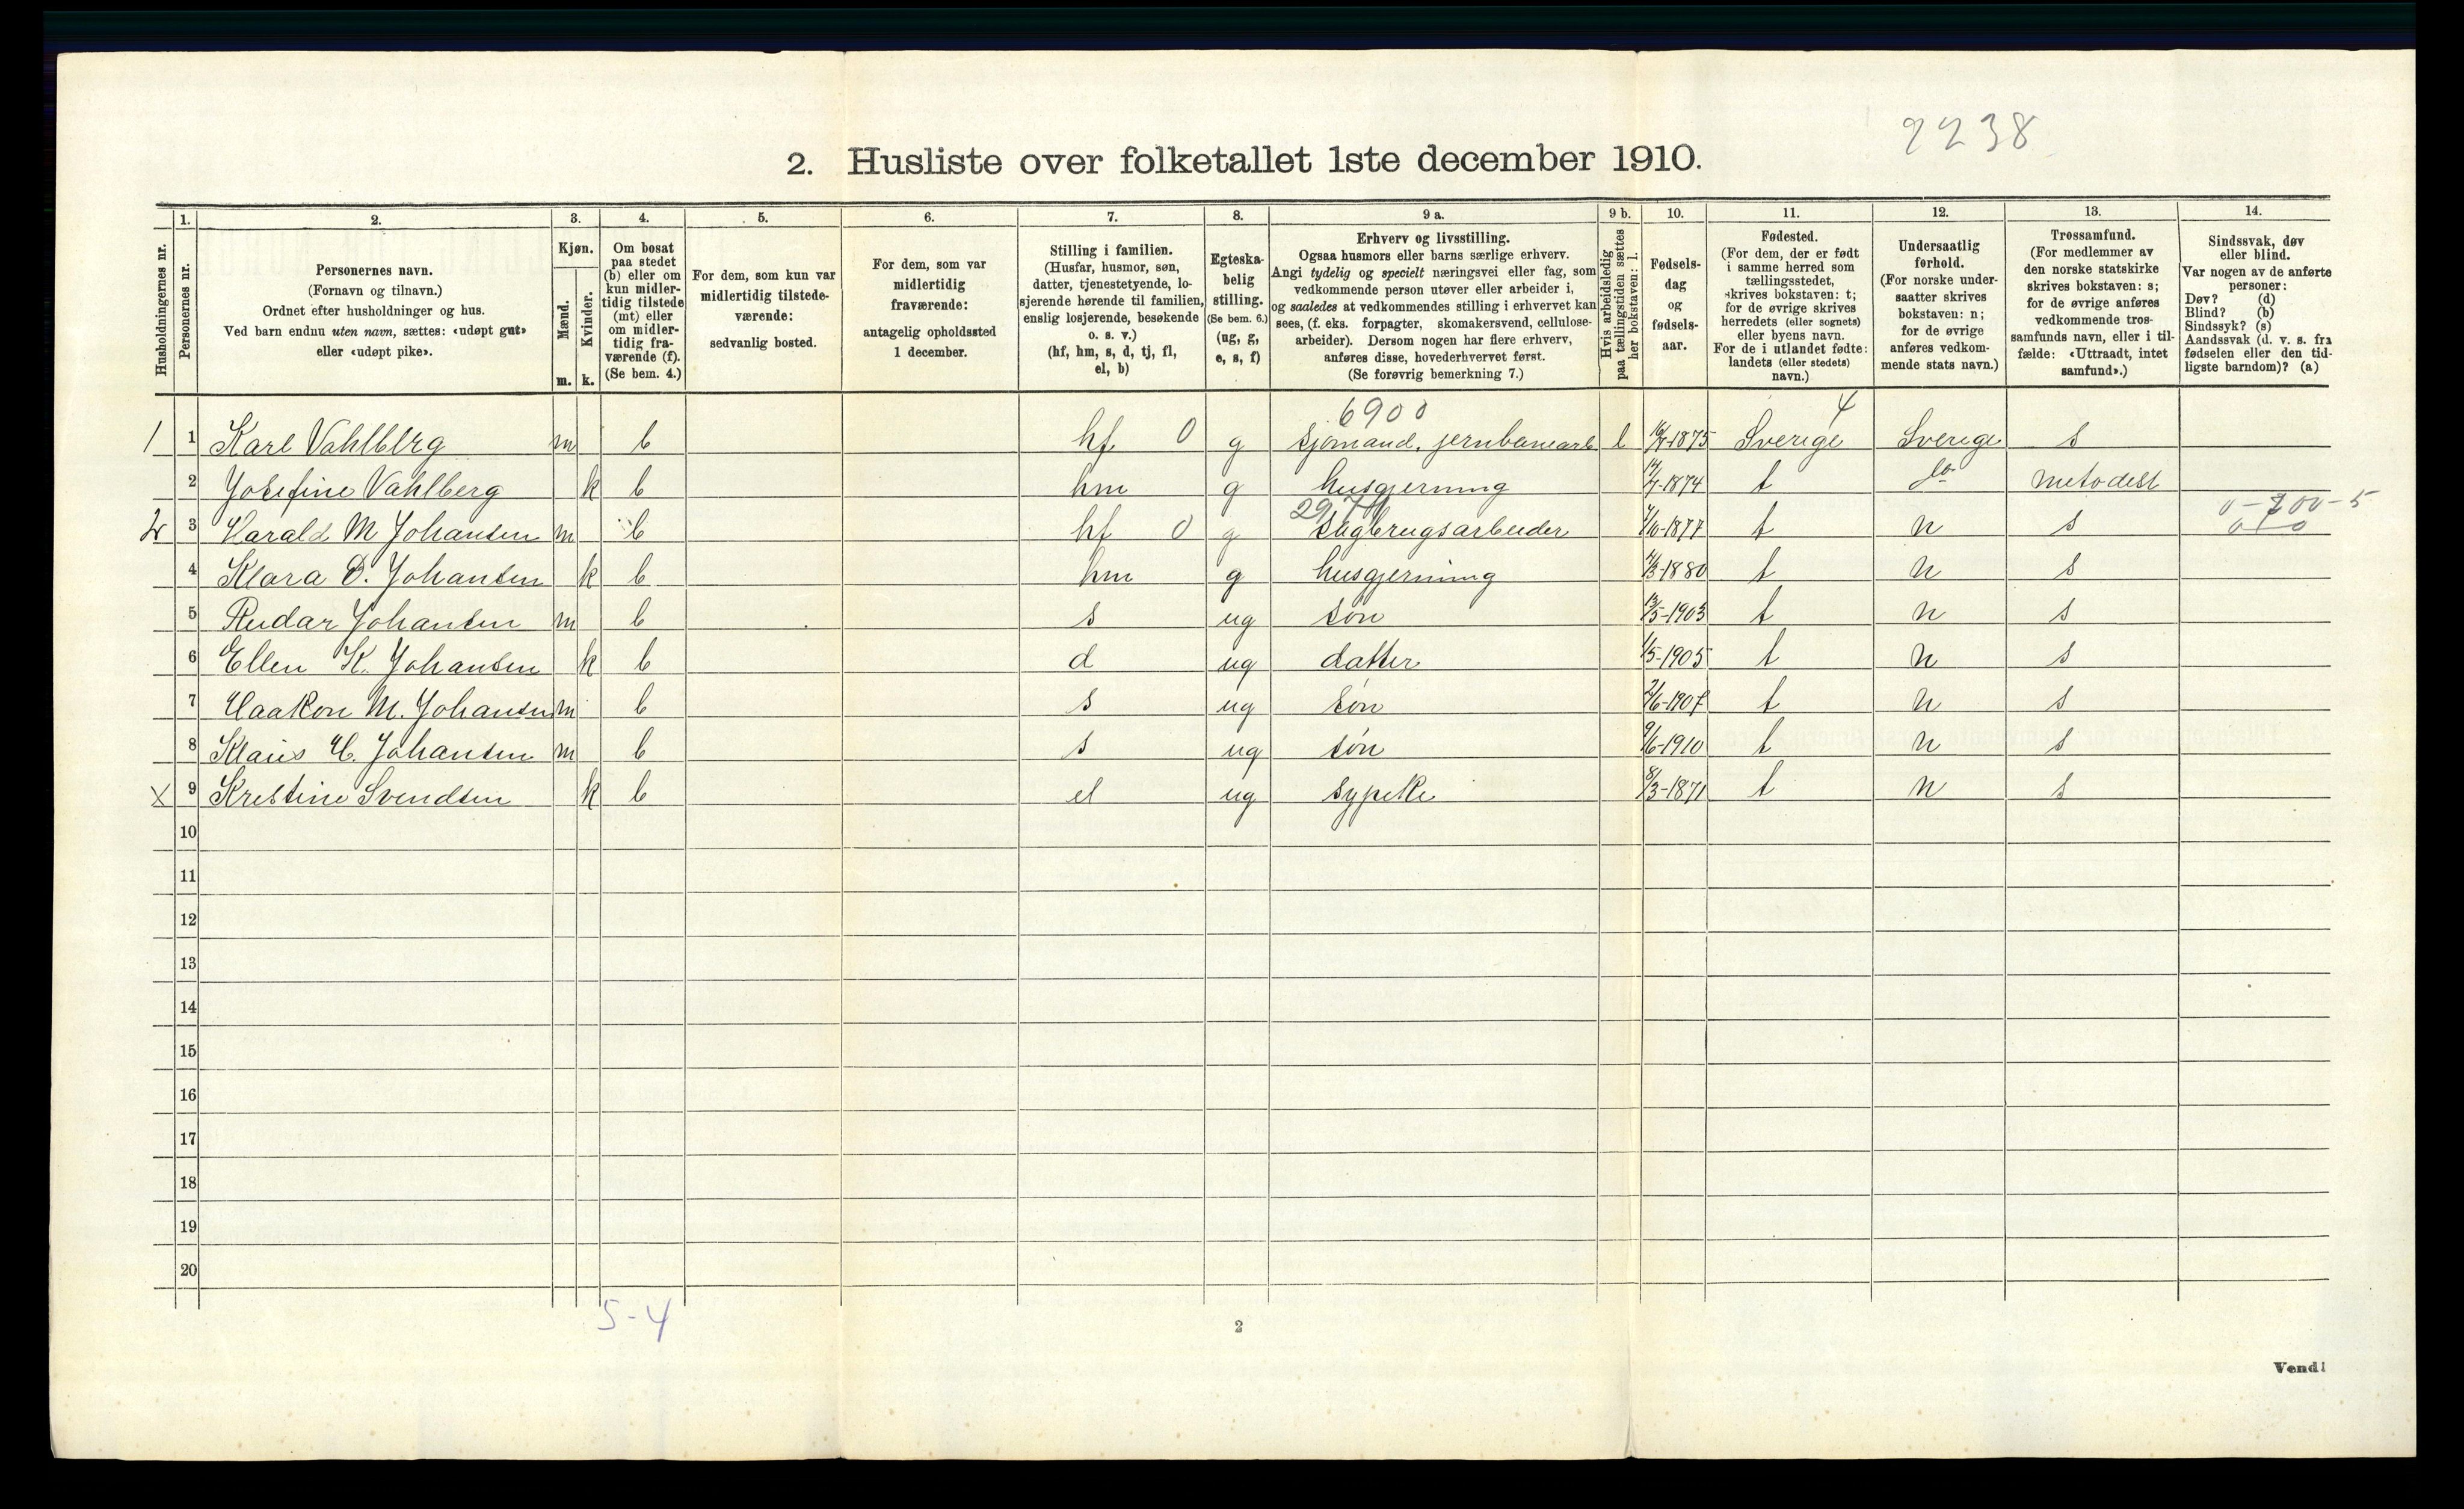 2238
2. Husliste over folketallet 1ste december 1910.
Husholdningernes nr.
1.
Personernes nr.
2.
Personernes navn.
(Fornavn og tilnavn.)
Ordnet efter husholdninger og hus.
Ved barn endnu uten navn, sættes: «udøpt gut»
eller «udøpt pike».
3.
Kjøn.
Mænd.
m.
Kvinder.
k.
4.
Om bosat
paa stedet
(b) eller om
kun midler-
tidig tilstede
(mt) eller
om midler-
tidig fra-
værende (f).
(Se bem. 4.)
5.
For dem, som kun var
midlertidig tilstede-
værende:
sedvanlig bosted.
6.
For dem, som var
midlertidig
fraværende:
antagelig opholdssted
1 december.
7.
Stilling i familien.
(Husfar, husmor, søn,
datter, tjenestetyende, lo-
sjerende hørende til familien,
enslig losjerende, besøkende
o. s. v.)
(hf, hm, s, d, tj, fl,
el, b)
8.
Egteska-
belig
stilling.
(Se bem. 6.)
(ug, g,
e, s, f)
9 a.
Erhverv og livsstilling.
Ogsaa husmors eller barns særlige erhverv.
Angi tydelig og specielt næringsvei eller fag, som
vedkommende person utøver eller arbeider i,
og saaledes at vedkommendes stilling i erhvervet kan
sees, (f. eks. forpagter, skomakersvend, cellulose-
arbeider). Dersom nogen har flere erhverv,
anføres disse, hovederhvervet først.
(Se forøvrig bemerkning 7.)
9 b.
Hvis arbeidsledig
paa tællingstiden sættes
her bokstaven: l.
10.
Fødsels-
dag
og
fødsels-
aar.
11.
Fødested.
(For dem, der er født
i samme herred som
tællingsstedet,
skrives bokstaven: t;
for de øvrige skrives
herredets (eller sognets)
eller byens navn.
For de i utlandet fødte:
landets (eller stedets)
navn.)
12.
Undersaatlig
forhold.
(For norske under-
saatter skrives
bokstaven: n;
for de øvrige
anføres vedkom-
mende stats navn.)
13.
Trossamfund.
(For medlemmer av
den norske statskirke
skrives bokstaven: s;
for de øvrige anføres
vedkommende tros-
samfunds navn, eller i til-
fælde: «Uttraadt, intet
samfund».)
14.
Sindssvak, døv
eller blind.
Var nogen av de anførte
personer:
Døv? (d)
Blind? (b)
Sindssyk? (s)
Aandssvak (d. v. s. fra
fødselen eller den tid-
ligste barndom)? (a)
6900 4
1 1 Karl Vahlberg m b hf 0 g Sjømand, jernbanearb l -1875 Sverige Sverige s
2 Josefine Vahlberg k b hm g husgjerning -1874 t do metodist
2 3 Harald M Johansen m b hf 0 g sagbrugsarbeider /10-1877 t n s
4 Klara D. Johansen k b hm g husgjerning /3-1880 t n s
5 Reidar Johansen m b s ug søn 13/5-1903 t n s
6 Ellen K. Johansen k b d ug datter 1/5-1905 t n s
7 Haakon M. Johansen m b s ug søn 2/6-1907 t n s
8 Klaus H. Johansen m b s ug søn 9/6-1910 t n s
x 9 Kristine Svendsen k b el ug sypike 8/3-1871 t n s
10
11
12
13
14
15
16
17
18
19
20
5-4
2
Vend!